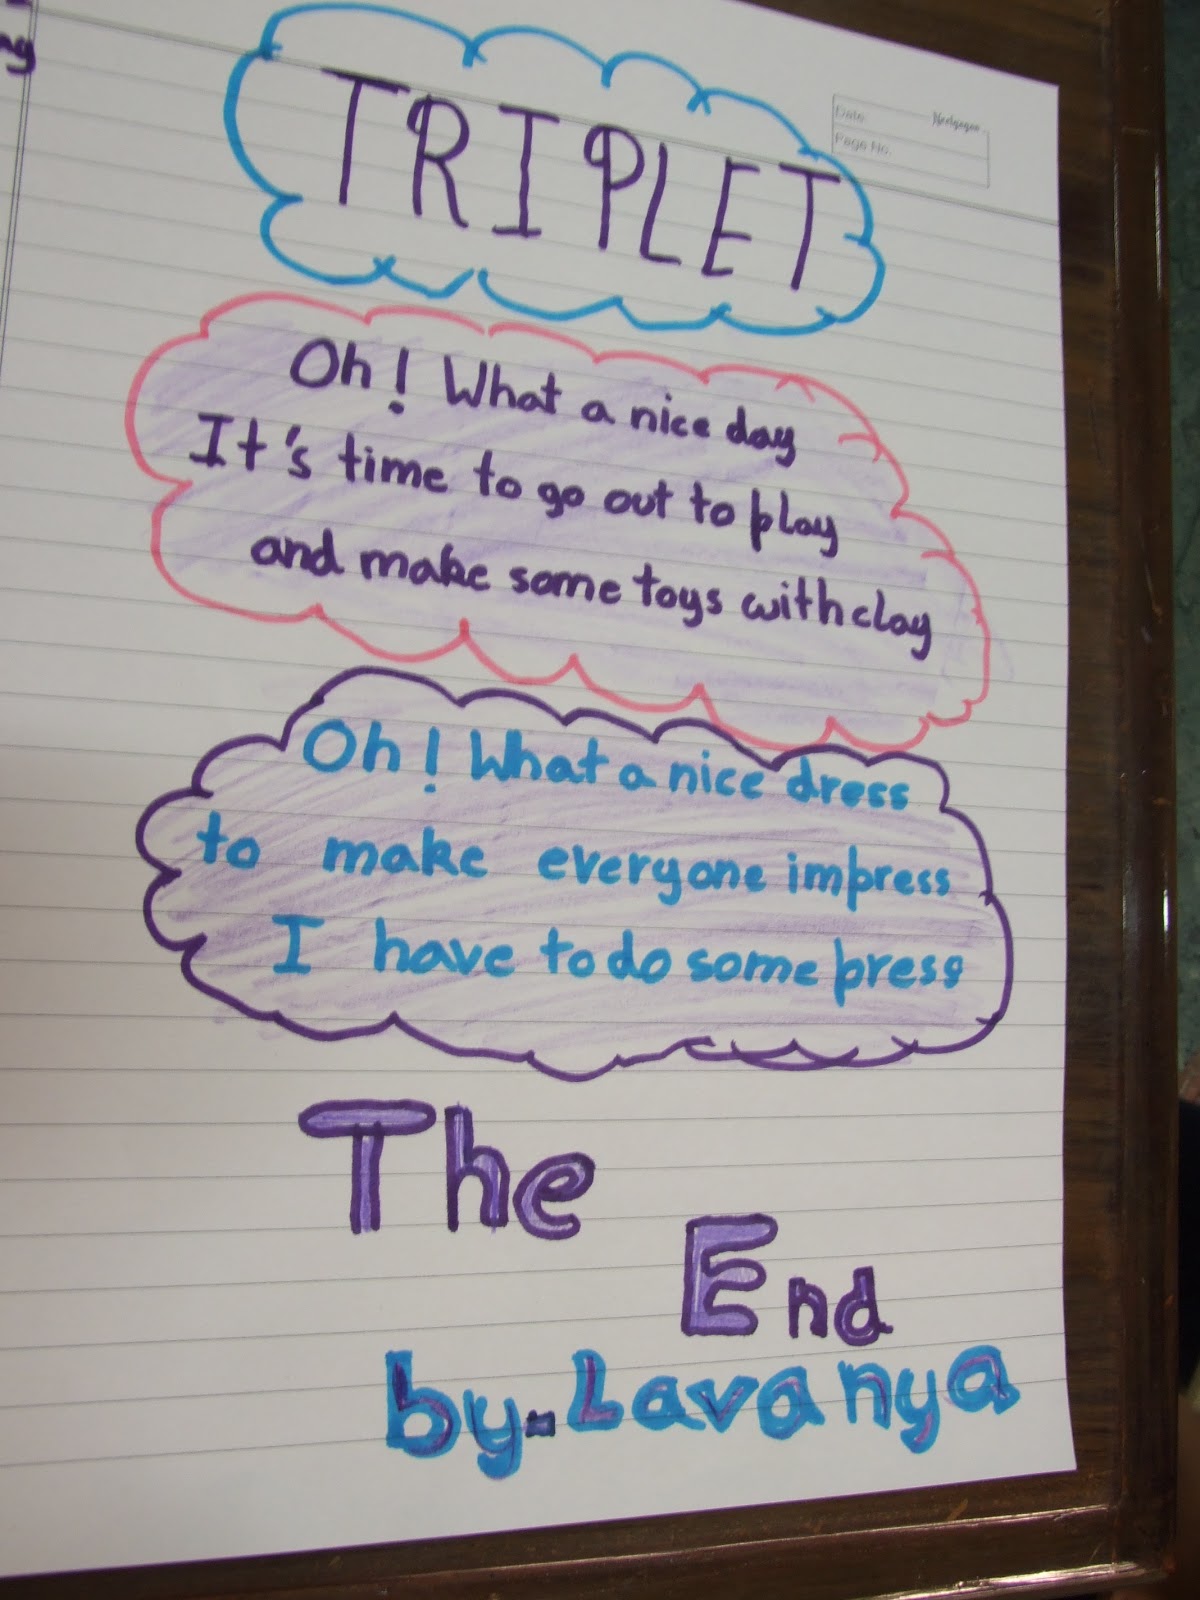 ng
TRIPLET
Date
Neelgagan
Page No.
Oh! What a nice day
It's time to go out to play
and make some toys with clay
Oh! What a nice dress
to make everyone impress
I have to do some press
The
End
by-Lavanya